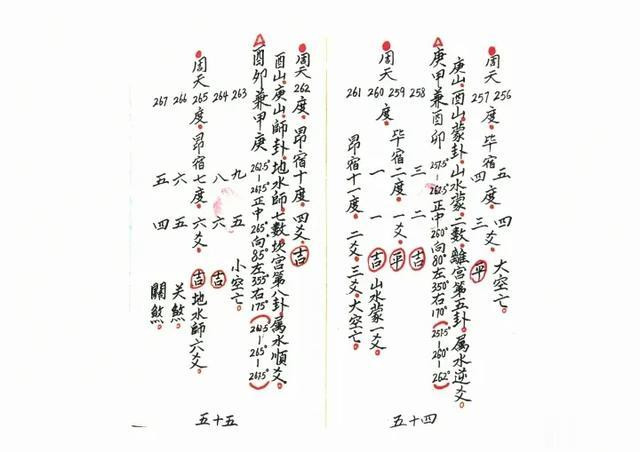 256 五 四 大空亡。
周天 度。毕宿 度。 爻。
257 四 三 平
庚山.酉山蒙卦.山水蒙.二數.離宮第五卦.属水逆爻。
庚甲兼酉卯 257.5°-262.5°正中260°向80°左350°右170°(257.5°-260°-262°)
258 三 二 吉
259 毕宿二度。一爻。平
周天 度。
260 一 一 吉 山水蒙一爻。
261 昂宿十一度。二爻。三爻。大空亡。
五十四
周天262度。昂宿十度。四爻。吉
酉山.庚山.師卦.地水師.七數.坎宮第八卦.属水順爻。
酉卯兼甲庚 262.5°-267.5°正中265°向85°左355°右175°(262.5°-265°-267.5°)
263 九 五 小空亡。
264 八 六 吉
周天265度。昂宿七度。六爻。吉 地水師六爻。
266 六 五 关煞。
267 五 四 關煞。
五十五